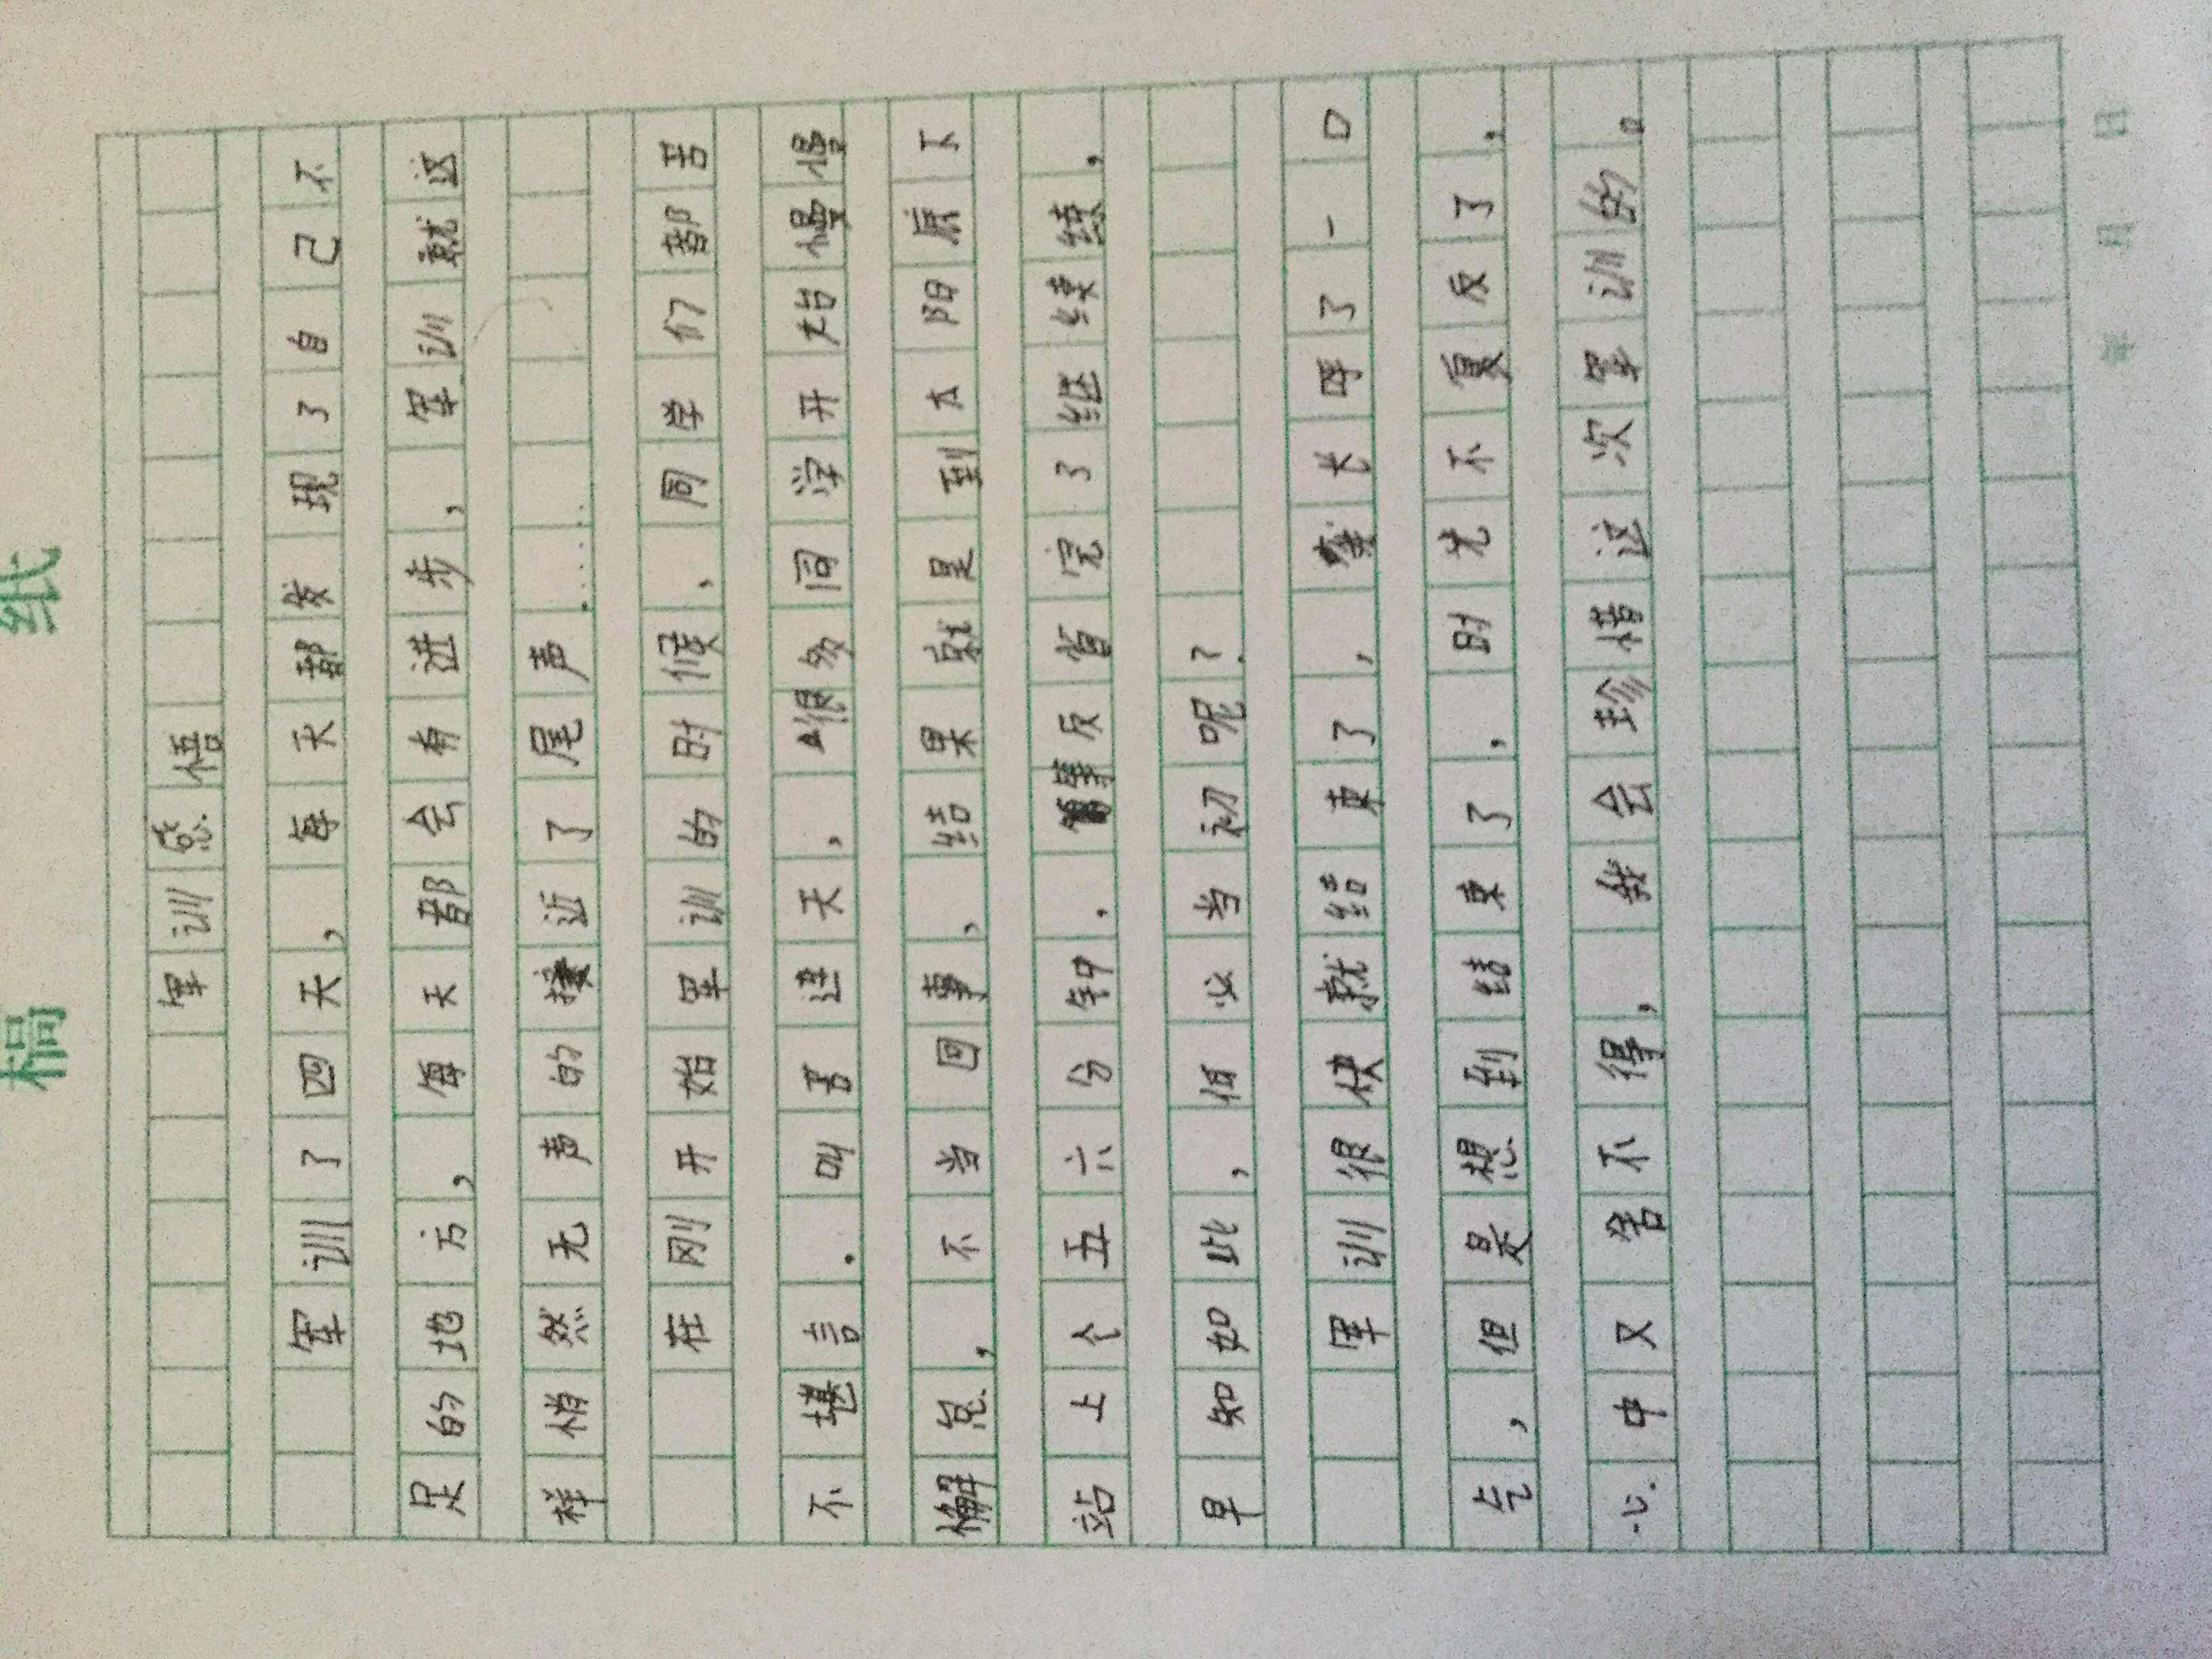 稿纸
军训感悟
军训了四天，每天都发现了自己不
足的地方，每天都会有进步，军训就这
样悄然无声的接近了尾声……
在刚开始军训的时候，同学们都苦
不堪言．叫苦连天，很多同学开始慢慢
懈怠，不当回事，结果就是到太阳底下
站上个五六分钟．反省完了继续练，
早知如此，何必当初呢？
军训很快就结束了，长呼了一口
气，但是想到结束了，时光不复反了，
心中又舍不得，我会珍惜这次军训的。
年月日